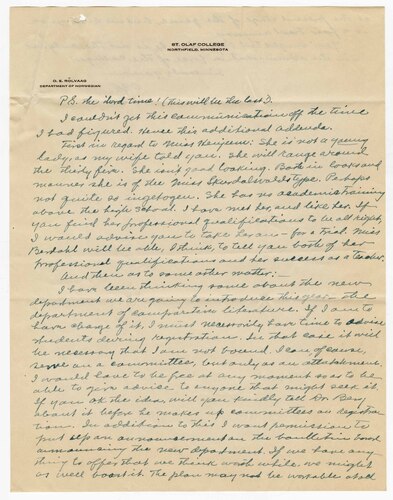 ST. OLAF COLLEGE
NORTHFIELD, MINNESOTA
O. E. ROLVAAG
DEPARTMENT OF NORWEGIAN
P.S. the third time! (This will be the last).
I couldn't get this communication off the time
I had figured. Hence this additional addenda.
First in regard to Miss She is not a young
lady, as my wife told you. She will range around
the thirty five. She isn't good looking. Both in looks and
manner she is of the Miss type. Perhaps
not quite so She has no academic training
above the high school. I have met her and like her. If
you find her professional qualifications to be all right,
I would advise you to take her on - for a trial. Miss
Berdahl will be able, I think, to tell you both of her
professional qualifications and her success as a teacher.
And then as to some other matter:—
I have been thinking some about the new
department we are going to introduce this year - the
department of comparative literature. If I am to
have charge of it, I must necessarily have time to advise
students during registration. In that case it will
be necessary that I am not bound. I can of course
serve on a committee, but only as an attachment.
I would have to be free at any moment so as to be
able to give advice to anyone that might seek it.
If you OK the idea, will you kindly tell Dr. Boe
about it before he makes up committees on registra-
tion. In addition to this I want permission to
put up an announcement on the boulletin board
announcing the new department. If we have any
thing to offer that we think worth while, we might
as well boost it. The plan may not be workable at all